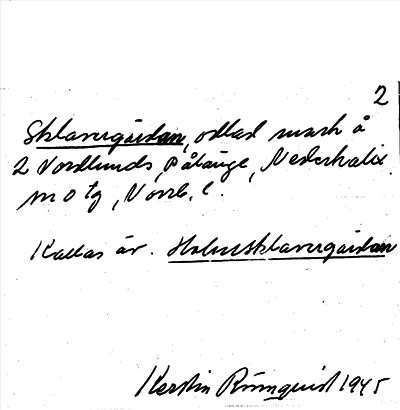 2
Sklavergårdan, odlad mark å
2 Nordlunds, Pålänge, Nederkalix
sn o tg, Norrb. l.
Kallas äv. Holmsklavergårdan
Kerstin Rönnquist 1945